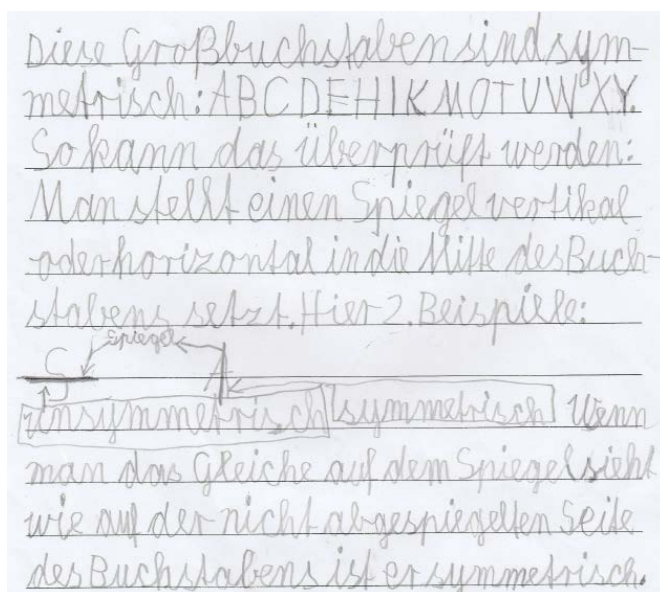 Diese Großbuchstaben sind sym-
metrisch: ABCDEHIKMOTUVWXY.
So kann das überprüft werden:
Man stellt einen Spiegel vertikal
oder horizontal in die Mitte des Buch-
stabens setzt. Hier 2. Beispiele:
S Spiegel A
unsymmetrisch symmetrisch Wenn
man das Gleiche auf dem Spiegel sieht
wie auf der nicht abgespiegelten Seite
des Buchstabens ist er symmetrisch.